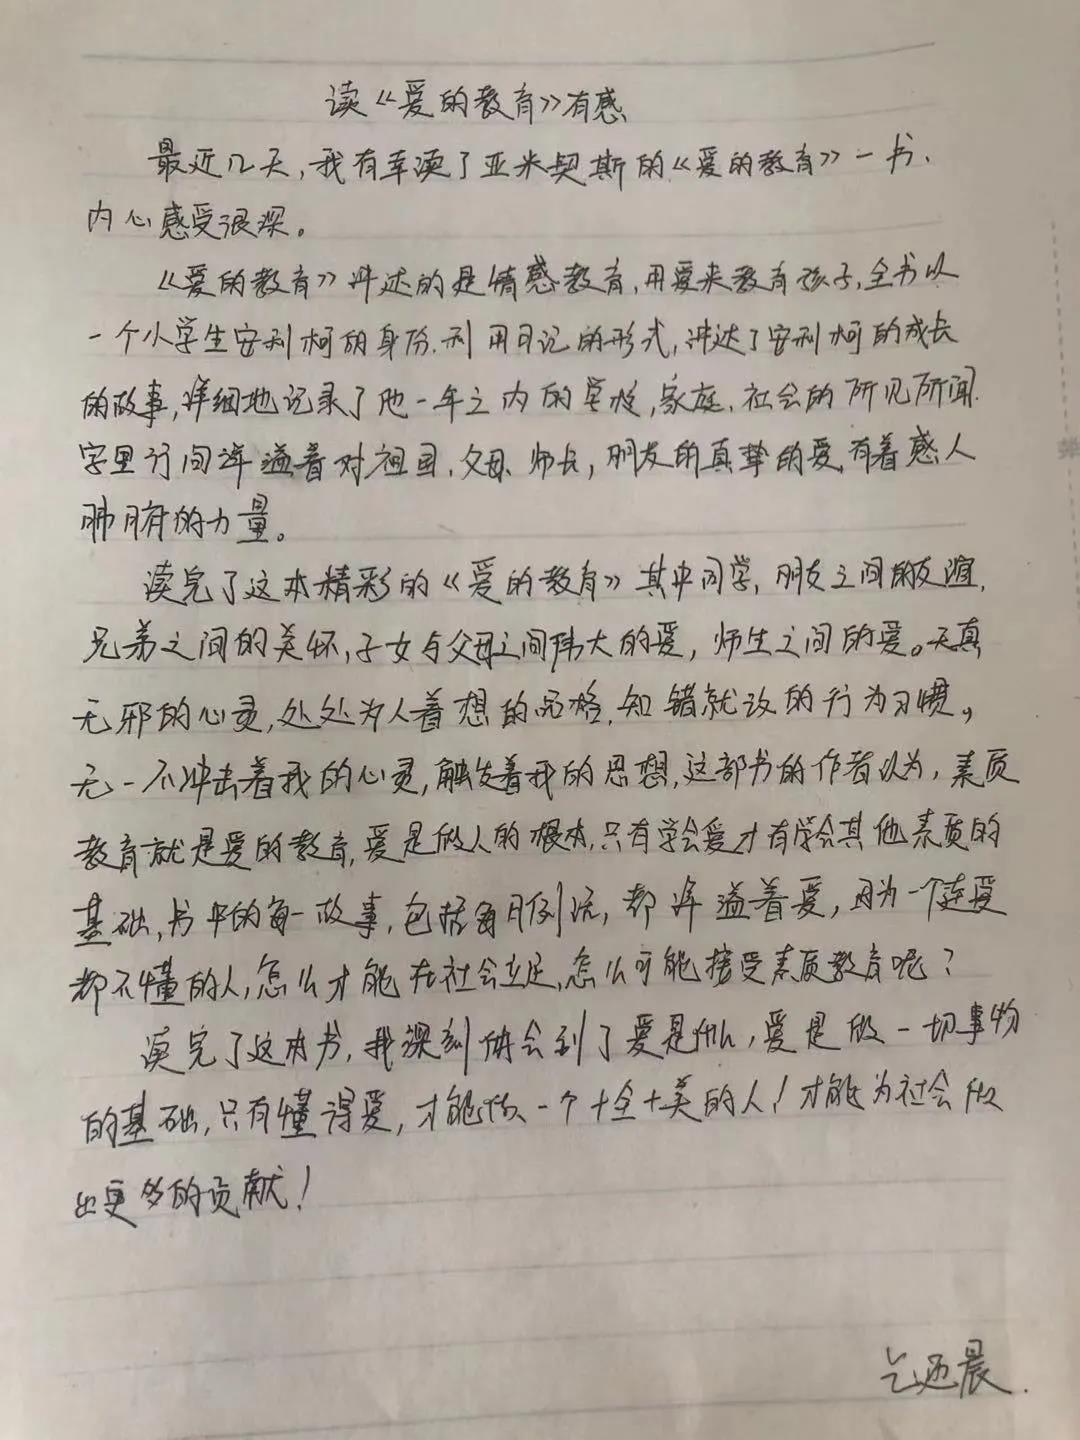 读《爱的教育》有感
最近几天,我有幸读了亚米契斯的《爱的教育》一书、
内心感受很深。
《爱的教育》讲述的是情感教育,用爱来教育孩子,全书以
一个小学生安利柯的身份.利用日记的形式,讲达了安利柯的成长
的故事,详细地记录了他一年之内的学校,家庭、社会的所见所闻.
字里行间洋溢着对祖国,父母、师长,朋友的真挚的爱,有着感人
肺腑的力量。
读完了这本精彩的《爱的教育》其中同学,朋友之间的友谊,
兄弟之间的关怀,子女与父母之间伟大的爱,师生之间的爱。天真
无邪的心灵,处处为人着想的品格,知错就改的行为习惯,
无一不冲击着我的心灵,触发着我的思想,这部书的作者认为,素质
教育就是爱的教育,爱是做人的根本,只有学会爱才有学会其他素质的
基础,书中的每一故事,包括每月例话,都洋溢着爱,因为一个连爱
都不懂的人,怎么才能在社会立足,怎么可能接受素质教育呢?
读完了这本书,我深刻体会到了爱是,爱是做一切事物
的基础,只有懂得爱,才能做一个十全十美的人!才能为社会做
出更多的贡献!
晨.